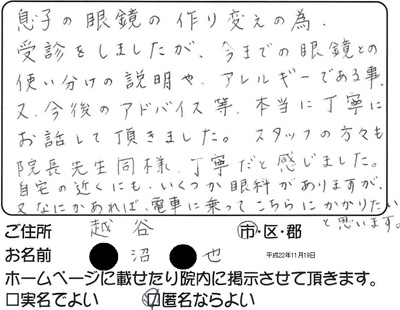 息子の眼鏡の作り変えの為、
受診をしましたが、今までの眼鏡との
使い分けの説明や、アレルギーである事、
又、今後のアドバイス等、本当に丁寧に
お話して頂きました。スタッフの方々も
院長先生同様、丁寧だと感じました。
自宅の近くにも、いくつか眼科がありますが、
又なにかあれば、電車に乗ってこちらにかかりたい
と思います。
ご住所 越谷 市・区・郡
お名前 沼 也 平成22年11月19日
ホームページに載せたり院内に掲示させて頂きます。
□実名でよい □匿名ならよい